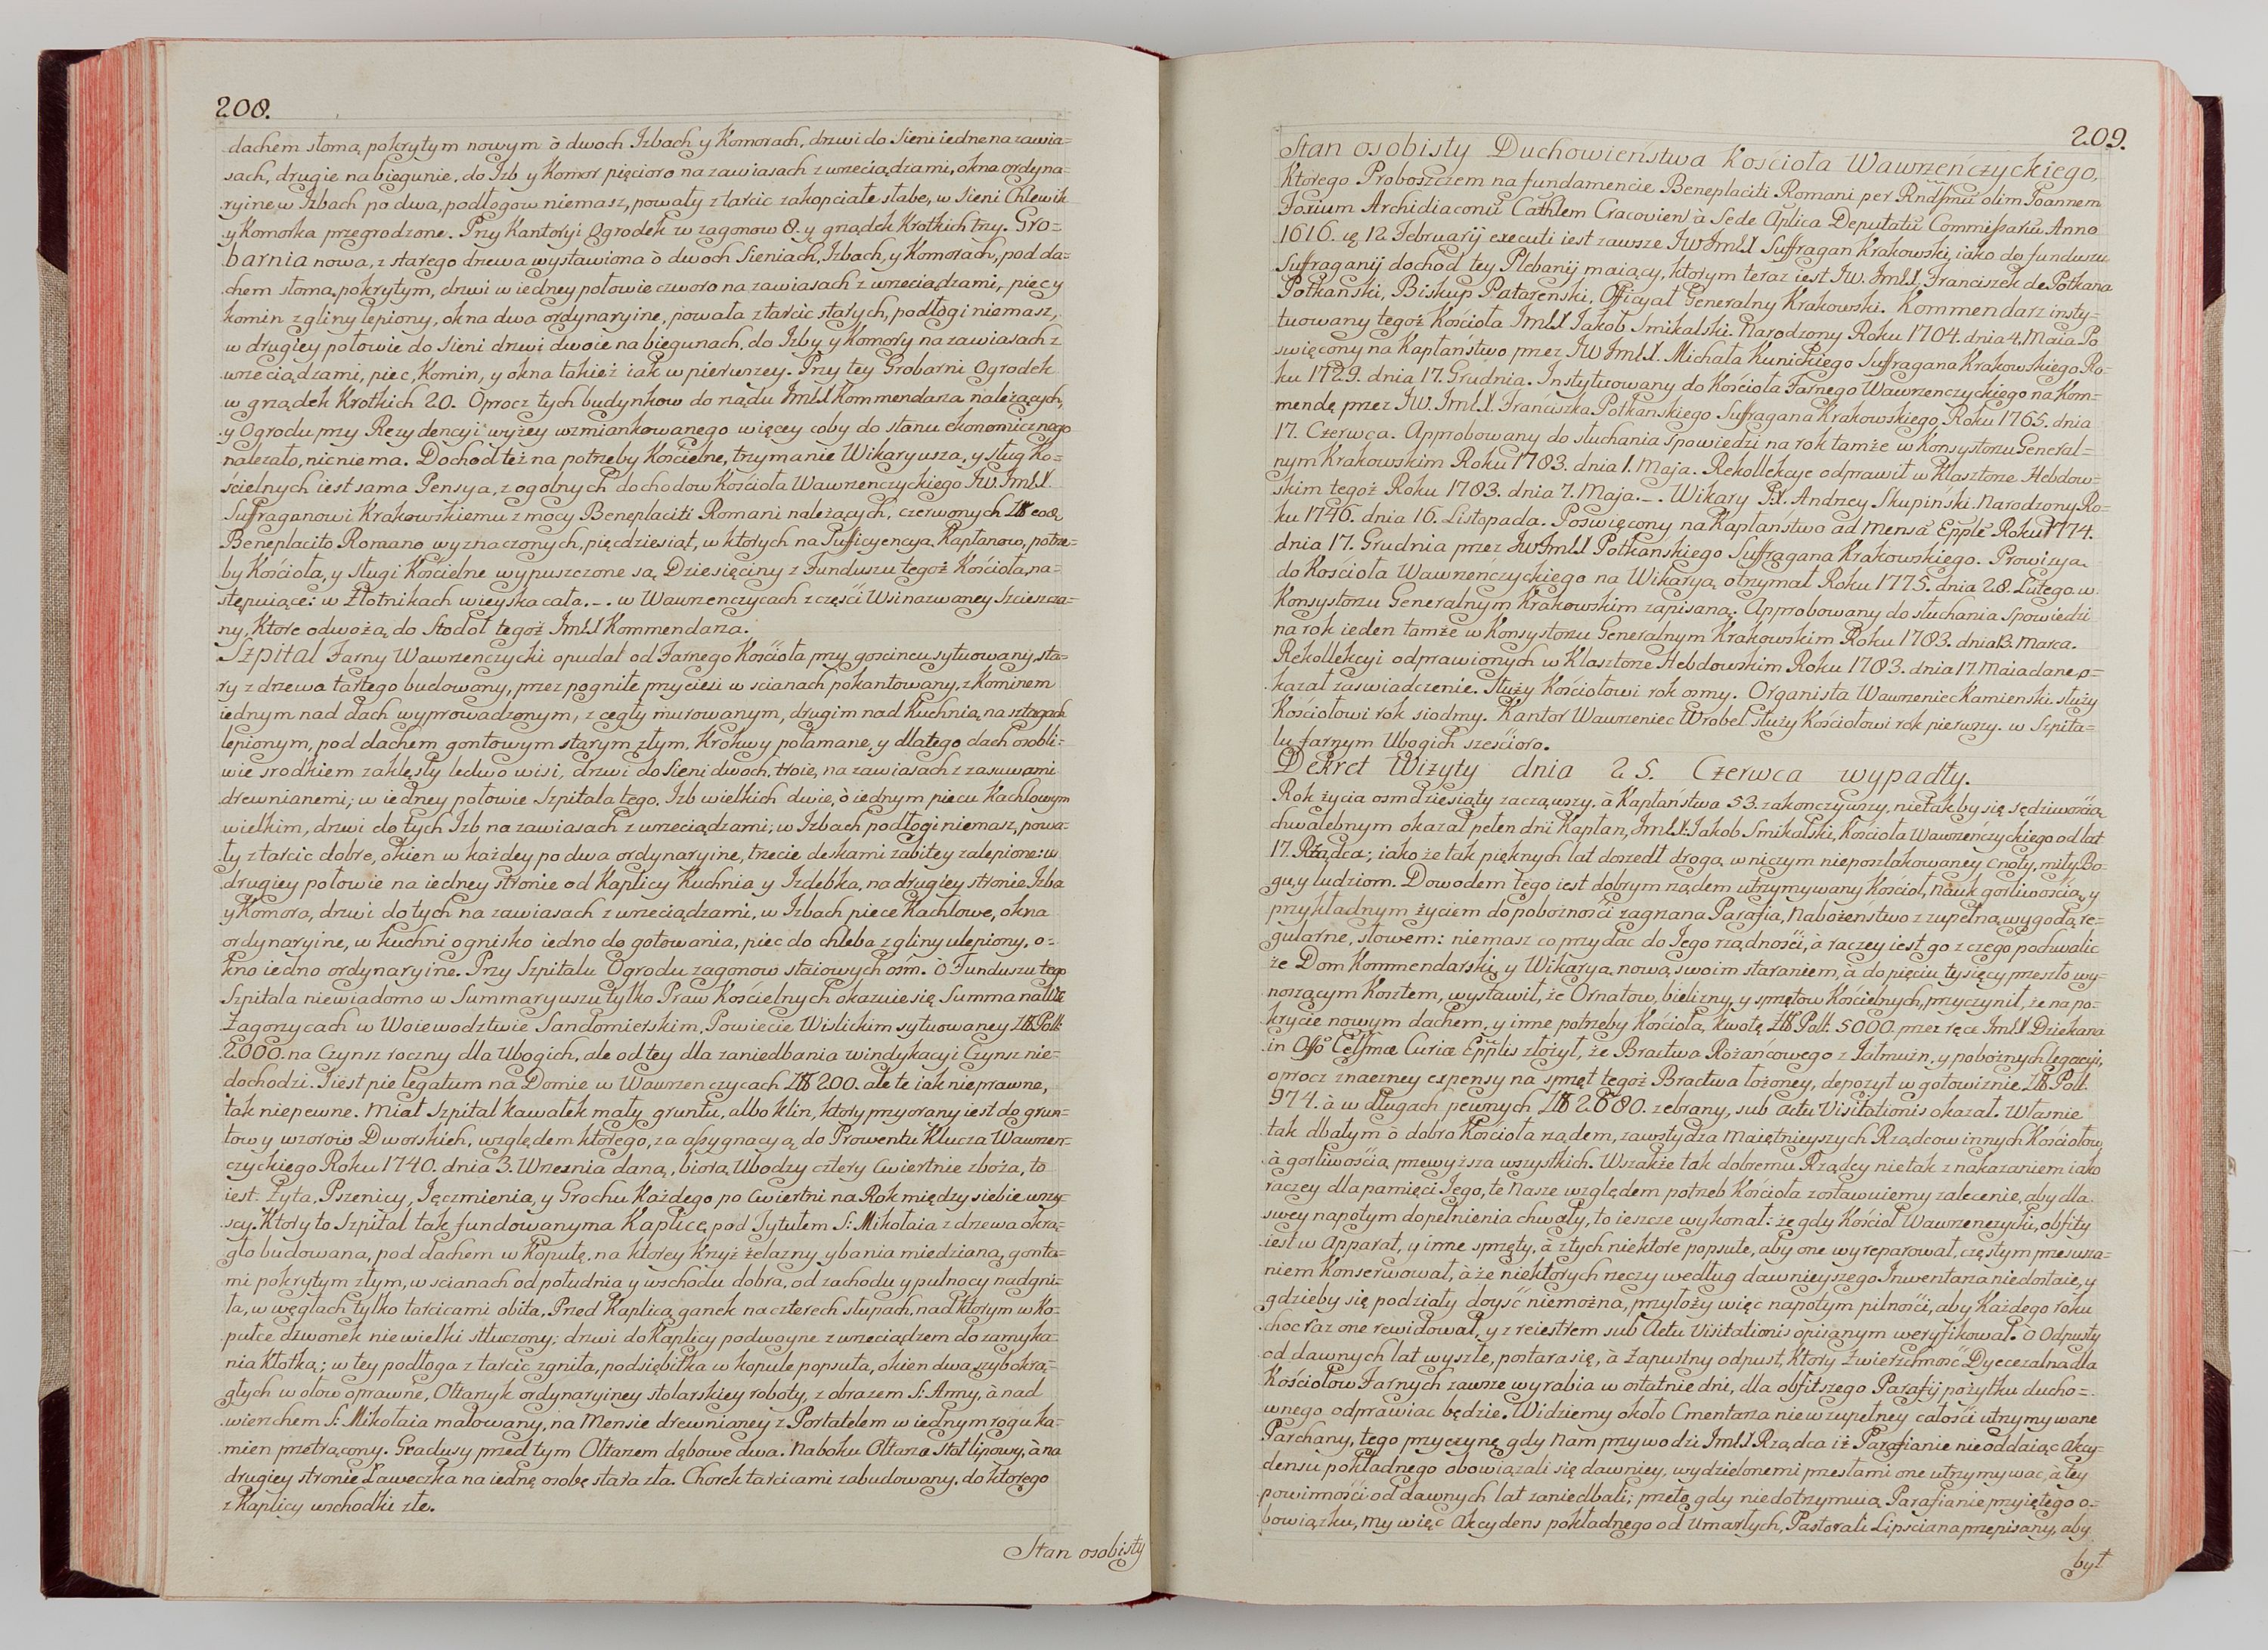 208.
dachem słomą pokrytym nowym ò dwoch Izbach y Komorach, drzwi do Sieni iedne na zawia=
sach, drugie na biegunie, do Izb y Komor pięcioro na zawiasach z wrzeciądzami, okna ordyna=
ryine w Izbach po dwa, podłogow niemasz, powały z tarcic zakopciałe słabe, w Sieni Chlewik
y Komorka przegrodzone. Przy Kantoryi Ogrodek w zagonow 8. y grządek Krotkich trzy. Gro=
barnia nowa, z starego drzewa wystawiona ò dwoch Sieniach, Izbach, y Komorach, pod da=
chem słomą pokrytym, drzwi w iedney połowie czworo na zawiasach z wrzeciądzami, piec y
komin z gliny lepiony, okna dwa ordynaryine, powała z tarcic starych, podłogi niemasz,
w drugiey połowie do Sieni drzwi dwoie na biegunach, do Izby y Komory na zawiasach z
wrzeciądzami, piec, Komin, y okna takież iak w pierwszey. Przy tey Grobarni Ogrodek
w grządek Krotkich 20. Oprocz tych budynkow do rządu ImLX Kommendarza należących,
y Ogrodu przy Rezydencyi wyżey wzmiankowanego więcey coby do stanu ekonomicznego
nalezało, nic niema. Dochod też na potrzeby Kościelne, trzymanie Wikaryusza, y sług Ko=
scielnych iest sama Pensya, z ogolnych dochodow Kościoła Wawrzenczyckiego JW. ImLX.
Suffraganowi Krakowskiemu z mocy Beneplaciti Romani należących, czerwonych Zł eodem
Beneplacito Romano wyznaczonych, pięcdziesiąt, w ktorych na Sufficyencyą Kapłanow, potrze=
by Kościoła, y sługi Kościelne wypuszczone są Dziesięciny z Funduszu tegoż Kościoła, na=
stępuiące: w Złotnikach wieyska cała. _. w Wawrzenczycach z części Wsi nazwaney Szcieszcza=
ny, Ktore odwożą do Stodoł tegoż ImLX Kommendarza.
Szpital Farny Wawrzenczycki opudal od Farnego Kościoła przy goscincu sytuowany, sta=
ry z drzewa tartego budowany, przez pogniłe przyciesi w scianach pokantowany, z Kominem
iednym nad dach wyprowadzonym, z cegły murowanym, drugim nad Kuchnią na sztagach
lepionym, pod dachem gontowym starym złym, Krokwy połamane, y dlatego dach osobli=
wie srodkiem zaklęsły ledwo wisi, drzwi do Sieni dwoch, troie, na zawiasach z zasuwami
drewnianemi; w iedney połowie Szpitala tego, Izb wielkich dwie, ò iednym piecu Kachlowym
wielkim, drzwi do tych Izb na zawiasach z wrzeciądzami; w Izbach podłogi niemasz, powa=
ły z tarcic dobre, okien w każdey po dwa ordynaryine, trzecie deskami zabitey zalepione: w
drugiey połowie na iedney stronie od Kaplicy Kuchnia y Izdebka, na drugiey stronie Izba
y Komora, drzwi do tych na zawiasach z wrzeciądzami, w Izbach piece Kachlowe, okna
ordynaryine, w kuchni ognisko iedno do gotowania, piec do chleba z gliny ulepiony, o=
kno iedno ordynaryine. Przy Szpitalu Ogrodu zagonow staiowych ośm. O Funduszu tego
Szpitala niewiadomo w Summaryuszu tylko Praw Kościelnych okazuie się Summa na Wsi
Zagorzycach w Woiewodztwie Sandomierskim, Powiecie Wislickim sytuowaney Zł Poll:
2000. na Czynsz roczny dla Ubogich, ale od tey dla zaniedbania windykacyi Czynsz nie=
dochodzi. Jiest pie legatum na Domie w Wawrzenczycach Zł 200. ale te iak nieprawne,
tak niepewne. Miał Szpital kawałek mały gruntu, albo klin, ktory przyorany iest do grun=
tow y wzorow Dworskich, względem ktorego, za assygnacyą do Prowentu Klucza Wawrzen=
czyckiego Roku 1740. dnia 3. Wrzesnia daną, biorą Ubodzy cztery Cwiertnie zboża, to
iest: Zyta, Pszenicy, Jęczmienia, y Grochu Każdego po Cwiertni na Rok między siebie wszy=
scy. Ktory to Szpital tak fundowany ma Kaplicę pod Tytułem S: Mikołaia z drzewa okrą=
gło budowana, pod dachem w Kopułę, na ktorey Krzyż żelazny y bania miedziana, gonta=
mi pokrytym złym, w scianach od południa y wschodu dobra, od zachodu y pułnocy nadgni=
ła, w węgłach tylko tarcicami obita, Przed Kaplicą ganek na czterech słupach, nad ktorym w Ko=
pułce dzwonek niewielki stłuczony; drzwi do Kaplicy podwoyne z wrzeciądzem do zamyka=
nia Kłotką; w tey podłoga z tarcic zgniła, podsiębitka w kopule popsuta, okien dwa, szyb okrą=
głych w ołow oprawne, Ołtarzyk ordynaryiney stolarskiey roboty, z obrazem S: Anny, à nad
wierzchem S: Mikołaia malowany, na Mensie drewnianey z Portatelem w iednym rogu ka=
mien przetrącony. Gradusy przed tym Ołtarzem dębowe dwa. Na boku Ołtarza Stal lipowy, à na
drugiey stronie Ławeczka na iednę osobę stara zła. Chorek tarcicami zabudowany, do ktorego
z Kaplicy wschodki złe.
Stan osobisty
209.
Stan osobisty Duchowieństwa Kościoła Wawrzeńczyckiego,
Ktorego Proboszczem na fundamencie Beneplaciti Romani per Rndsmũ olim Joannem
Foxium Archidiaconũ Cathlem Cracovien à Sede Aplica Deputatũ Commissariũ Anno
1616. 12 Februarij executi iest zawsze JW ImLX Suffragan Krakowski, iako do funduszu
Suffraganij dochod tey Plebanij maiący, ktorym teraz iest JW. ImLX, Franciszek de Potkana
Potkański, Biskup Patarenski, Officyał Generalny Krakowski. Kommendarz insty=
tuowany tegoż Kościoła ImLX Jakob Smikalski. Narodzony Roku 1704. dnia 4. Maia Po
swięcony na Kapłanstwo przez JW ImLX. Michała Kunickiego Suffragana Krakowskiego Ro=
ku 1729. dnia 17. Grudnia. Instytuowany do Kościoła Farnego Wawrzenczyckiego na Kom=
mendę przez JW. ImLX. Franciszka Potkanskiego Suffragana Krakowskiego, Roku 1765. dnia
17. Czerwca. Approbowany do słuchania Spowiedzi na rok tamże w Konsystorzu General=
nym Krakowskim Roku 1783. dnia 1. Maja. Rekollekcye odprawił w Klasztorze Hebdow=
skim tegoż Roku 1783. dnia 7. Maja. _. Wikary PX. Andrzey Skupinski. Narodzony Ro=
ku 1746. dnia 16. Listopada. Poswięcony na Kapłanstwo ad Mensã Epple Roku 1774.
dnia 17. Grudnia przez JW ImLX Potkanskiego Suffragana Krakowskiego. Prowizyą
do Kościoła Wawrzeńczyckiego na Wikaryą otrzymał Roku 1775. dnia 28. Lutego w
Konsystorzu Generalnym Krakowskim zapisaną. Approbowany do słuchania Spowiedzi
na rok ieden tamże w Konsystorzu Generalnym Krakowskim Roku 1783. dnia 13. Marca.
Rekollekcyi odprawionych w Klasztorze Hebdowskim Roku 1783. dnia 17. Maia dane o=
kazał zaswiadczenie. Służy Kościołowi rok osmy. Organista Wawrzeniec Kamienski służy
Kościołowi rok siodmy. Kantor Wawrzeniec Wrobel służy Kościołowi rok pierwszy. w Szpita=
lu farnym Ubogich sześcioro.
Dekret Wizyty dnia 25. Czerwca wypadły.
Rok życia osmdziesiąty zacząwszy, à Kapłaństwa 53. zakonczywszy, nietak by się sędziwością
chwalebnym okazał pełen dni Kapłan, ImLX. Jakob Smikalski, Kościoła Wawrzeńczyckiego od lat
17. Rządca; iako że tak pięknych lat doszedł drogą w niczym nieposzlakowaney Cnoty, miły Bo=
gu, y ludziom. Dowodem tego iest dobrym rządem utrzymywany Kościoł, Nauk gorliwością, y
przykładnym życiem do pobożności zagrzana Parafia, Nabożenstwo z zupełną wygodą re=
gularne, słowem: niemasz co przydac do Jego rządności, à raczey iest go z czego pochwalic
że Dom Kommendarski, y Wikarya nową, swoim staraniem, à do pięciu tysięcy przeszło wy=
noszącym Kosztem, wystawił, że Ornatow, bielizny, y sprzętow Kościelnych, przyczynił, że na po=
krycie nowym dachem, y inne potrzeby Kościoła, kwotę Zł Poll: 5000. przez ręce ImLX Dziekana
in Offo Celsmæ Curiæ Epplis złożył, że Bractwa Różańcowego z Jałmużn, y pobożnych legacyi,
oprocz znaczney expensy na sprzęt tegoż Bractwa łożoney, depozyt w gotowiznie Zł Poll:
974. à w długach pewnych Zł 2680. zebrany, sub Actu Visitationis okazał. Własnie
tak dbałym ò dobro Kościoła rządem, zawstydza Maiętnieyszych Rządcow innych Kościołow,
à gorliwością przewyższa wszystkich. Wszakże tak dobremu Rządcy nietak z nakazaniem iako
raczey dla pamięci Jego, te Nasze względem potrzeb Kościoła zostawuiemy zalecenie, aby dla
swey napotym dopełnienia chwały, to ieszcze wykonał: że gdy Kościoł Wawrzenczycki, obfity
iest w Apparat, y inne sprzęty, à z tych niektore popsute, aby one wyreparował, częstym przesusza=
niem Konserwował, à że niektorych rzeczy według dawnieyszego Inwentarza niedostaie, y
gdzieby się podziały doyść niemożna, przyłoży więc napotym pilności, aby Każdego roku
choc raz one rewidował, y z reiestrem sub Actu Visitationis opisanym weryfikował. O Odpusty
od dawnych lat wyszłe, postara się, à Zapustny odpust, Ktory Zwierzchność Dyecezalna dla
Kościołow Farnych zawsze wyrabia w ostatnie dni, dla obfitszego Parafij pożytku ducho=
wnego odprawiac będzie. Widziemy około Cmentarza niewzupełney całości utrzymywane
Parchany, tego przyczynę gdy Nam przywodzi ImLX Rządca iż Parafianie nieoddaiąc Akcy=
densu pokładnego obowiązali się dawniey, wydzielonemi przesłami one utrzymywac, à tey
powinności od dawnych lat zaniedbali; przeto gdy niedotrzymuią Parafianie przyiętego o=
bowiązku, My więc Akcydens pokładnego od Umarłych, Pastorali Lipsciana przepisany, aby
był